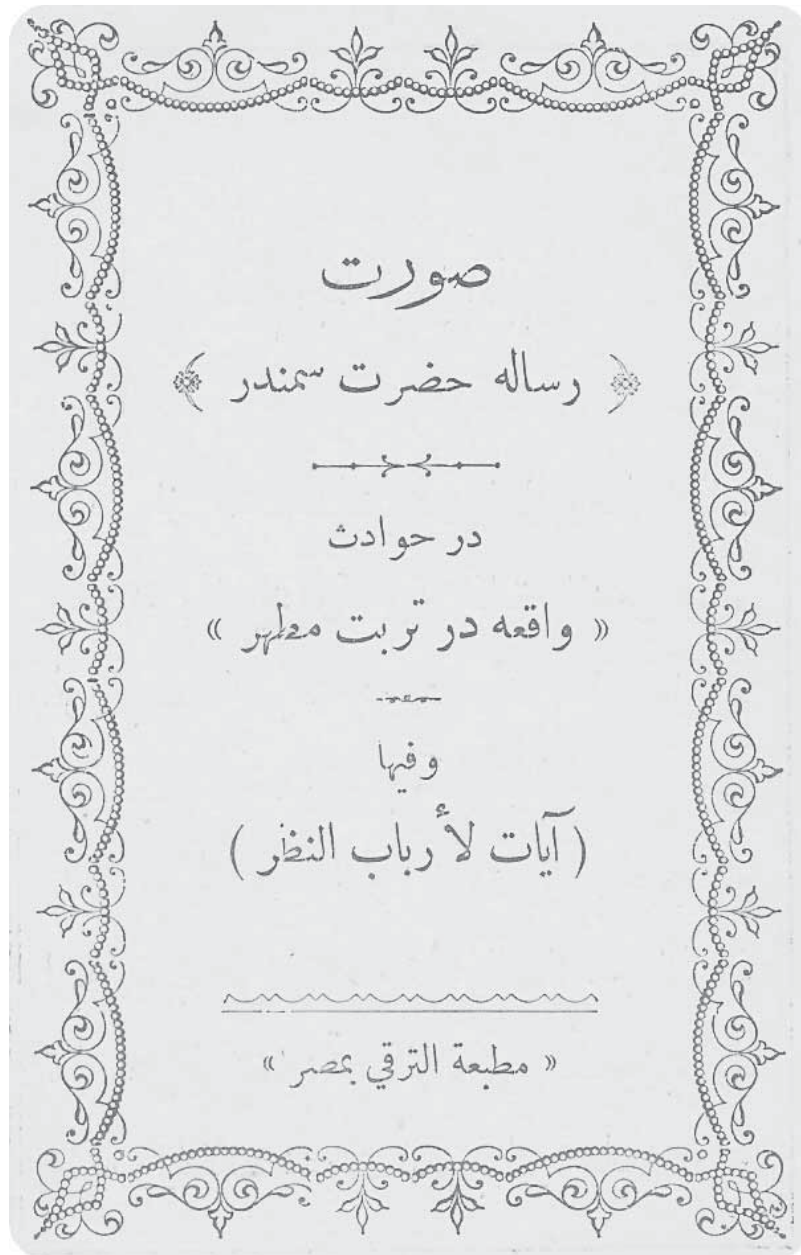 صورت
﴿ رساله حضرت سمندر ﴾
در حوادث
« واقعه در تربت مطهر »
وفيها
( آيات لأرباب النظر )
« مطبعة الترقي بمصر »